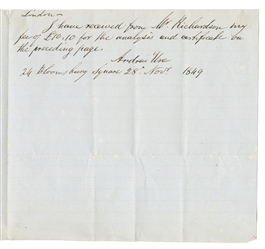 London
I have received from Mr. Richardson my
fee of £10.10 for the analysis and certificate on
the preceding page.
Andrew Ure
24 Bloomsbury Square 28 Novr 1849